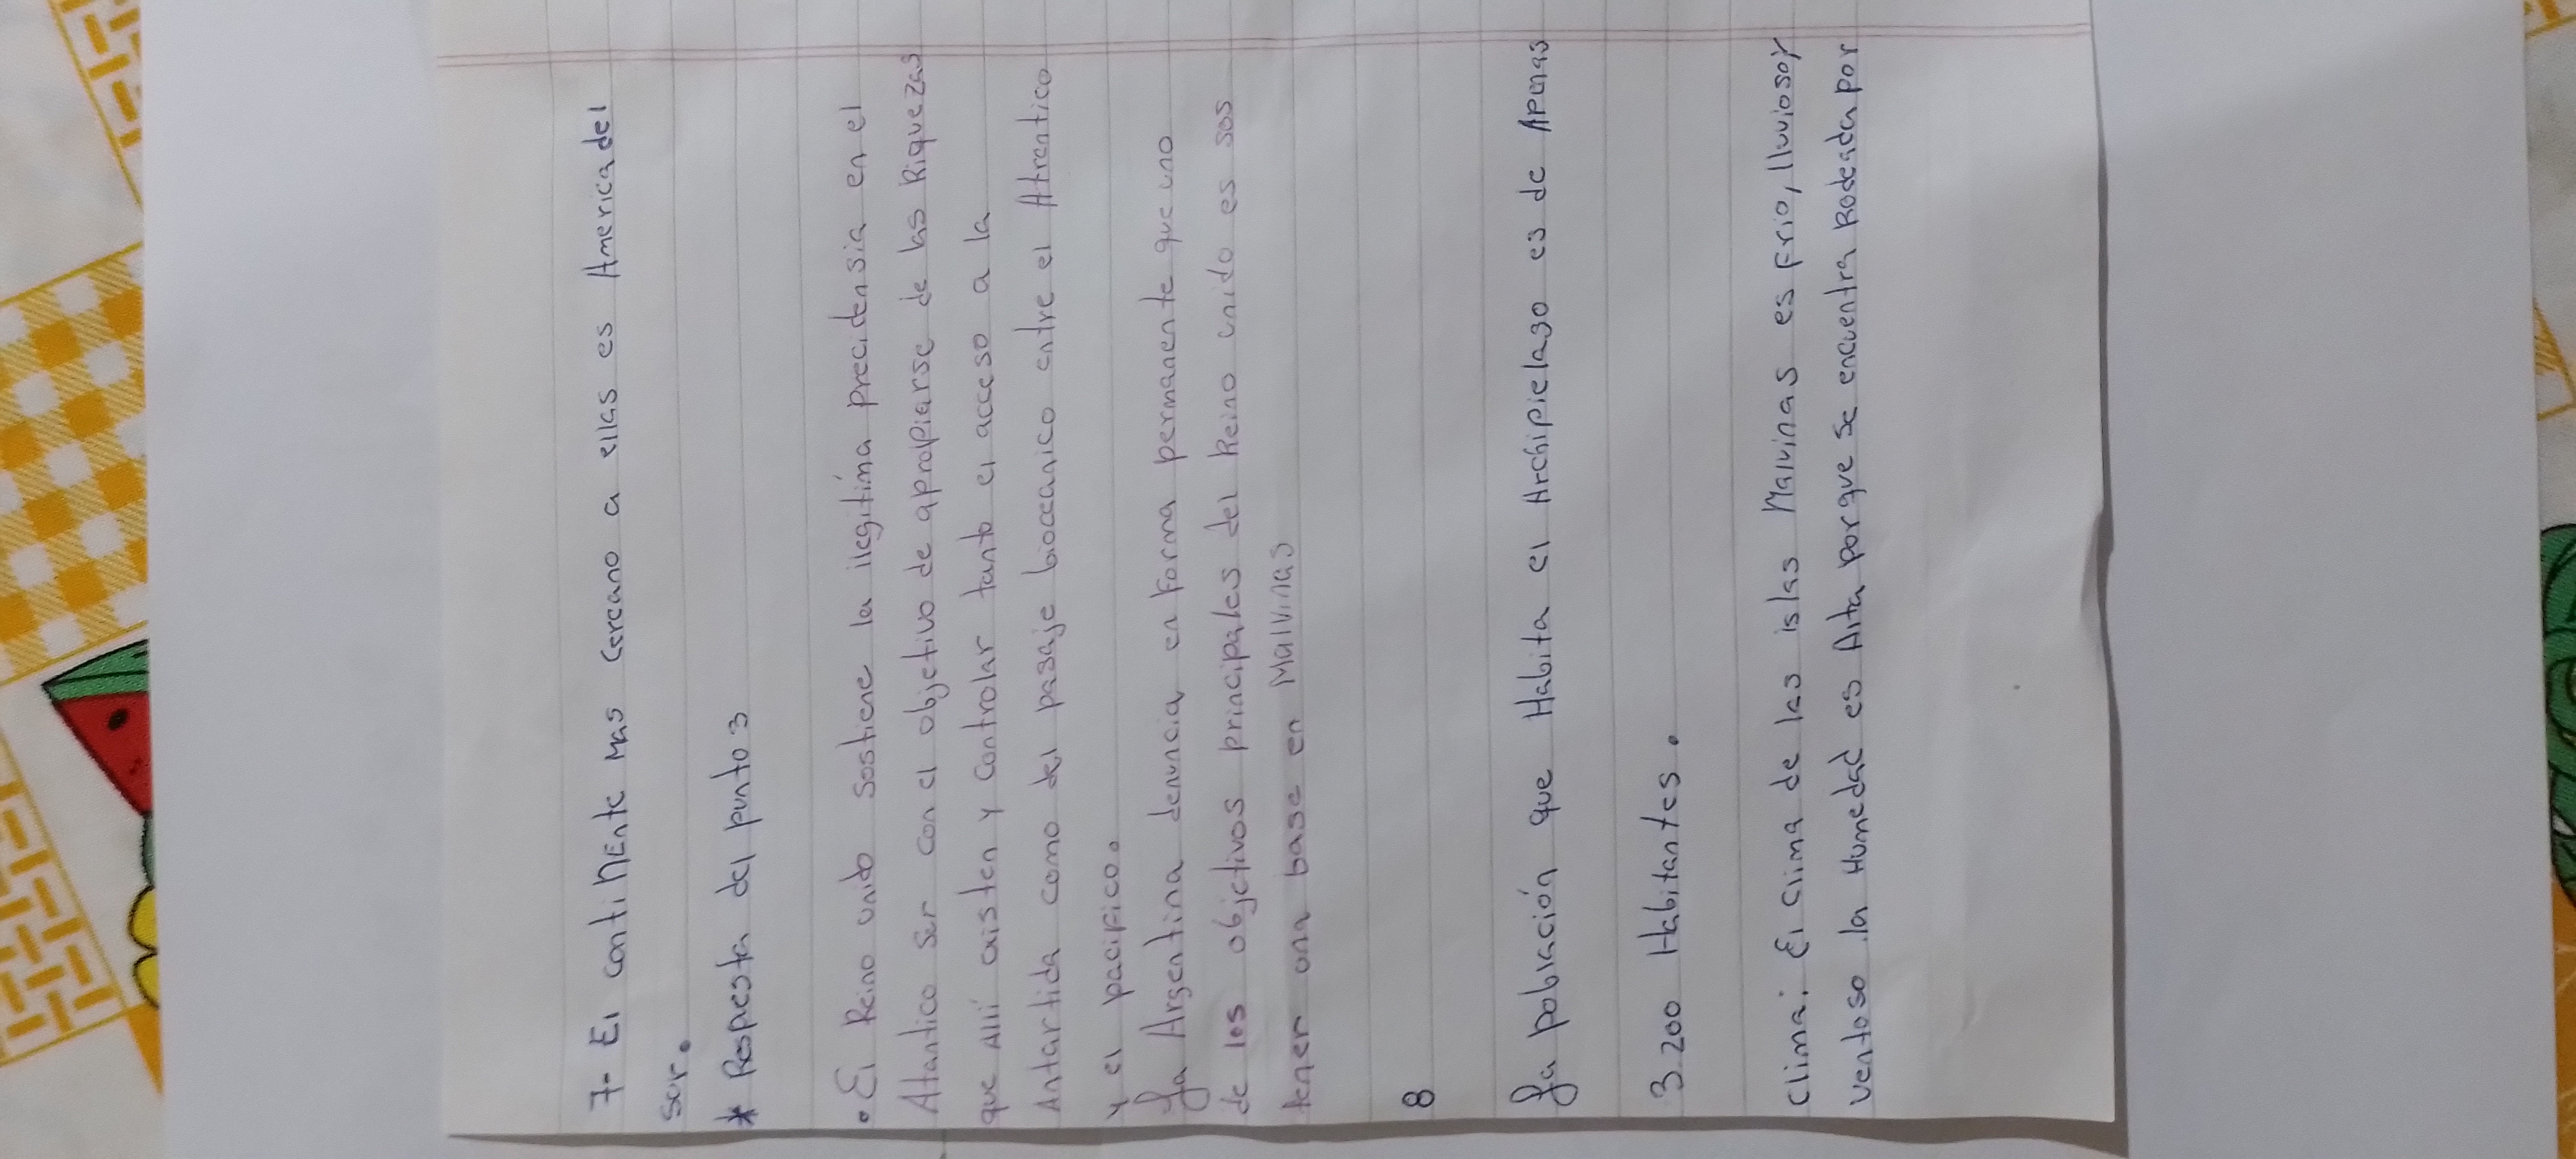 7- El continente mas cercano a ellas es America del
sur.
* Respuesta del punto 3
• El Reino unido sostiene la ilegitíma precidensia en el
Atlantico Sur con el objetivo de apropiarse de las Riquezas
que Allí existen y controlar tanto el acceso a la
Antartida como del pasaje bioceanico entre el Atrantico
y el pacifico.
La Argentina denuncia en forma permanente que uno
de los objetivos principales del Reino unido es sos
tener una base en Malvinas
8
La población que Habita el Archipielago es de Apenas
3.200 Habitantes.
Clima: El clima de las islas Malvinas es frio, lluvioso y
ventoso la Humedad es Alta porque se encuentra Rodeada por